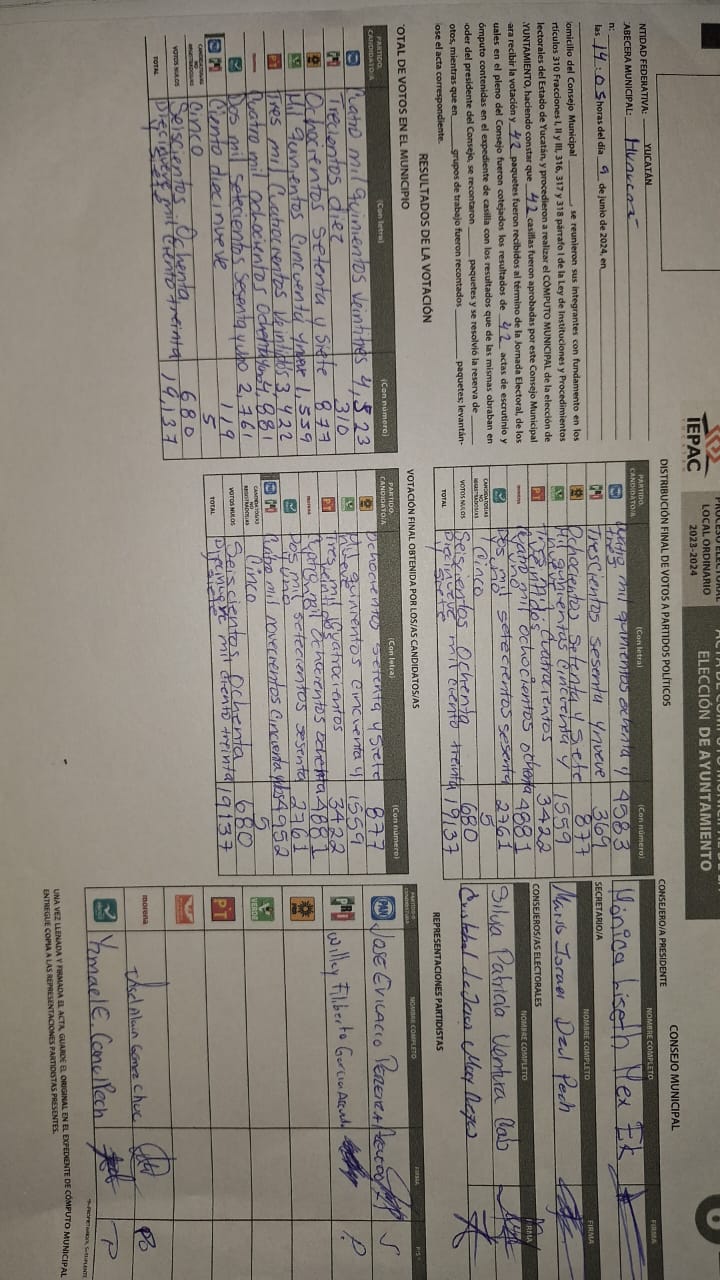 IEPAC
PROCESO ELECTORAL
LOCAL ORDINARIO
2023-2024
ELECCIÓN DE AYUNTAMIENTO
NTIDAD FEDERATIVA: YUCATÁN
CABECERA MUNICIPAL: Hunucma
n:
las 14:05 horas del día 9 de junio de 2024, en
omicilio del Consejo Municipal, se reunieron sus integrantes con fundamento en los
rtículos 310 Fracciones I, II y III, 316, 317 y 318 párrafo I de la Ley de Instituciones y Procedimientos
lectorales del Estado de Yucatán, y procedieron a realizar el CÓMPUTO MUNICIPAL de la elección de
YUNTAMIENTO, haciendo constar que 42 casillas fueron aprobadas por este Consejo Municipal
ara recibir la votación y 42 paquetes fueron recibidos al término de la Jornada Electoral, de los
uales en el pleno del Consejo fueron cotejados los resultados de 42 actas de escrutinio y
ómputo contenidas en el expediente de casilla con los resultados que de las mismas obraban en
oder del presidente del Consejo, se recontaron paquetes y se resolvió la reserva de
otos, mientras que en grupos de trabajo fueron recontados paquetes; levantán-
ose el acta correspondiente.
RESULTADOS DE LA VOTACIÓN
OTAL DE VOTOS EN EL MUNICIPIO
PARTIDO, CANDIDATO/A (Con letra) (Con número)
Cuatro mil quinientos veintitres 4,523
PRI Trecientos diez 310
Ochocientos Setenta y Siete 877
Mil quinientos Cincuenta y nueve 1,559
PT Tres mil Cuatrocientos Veintidos 3,422
morena Cuatro mil ochocientos Ochenta y uno 4,881
Dos mil setecientos sesenta y uno 2,761
Ciento diecinueve 119
CANDIDATOS/AS NO REGISTRADOS/AS Cinco 5
VOTOS NULOS Seiscientos Ochenta 680
TOTAL Diecinueve mil ciento treinta y siete 19,137
DISTRIBUCIÓN FINAL DE VOTOS A PARTIDOS POLÍTICOS
PARTIDO, CANDIDATO/A (Con letra) (Con número)
Cuatro mil quinientos ochenta y tres 4583
PRI Trescientos sesenta y nueve 369
Ochocientos Setenta y Siete 877
Mil quinientos Cincuenta y nueve 1559
PT Tres mil Cuatrocientos veintidós 3422
morena Cuatro mil ochocientos ochenta y uno 4881
Dos mil setecientos sesenta y uno 2761
CANDIDATOS/AS NO REGISTRADOS/AS Cinco 5
VOTOS NULOS Seiscientos Ochenta 680
TOTAL Diecinueve mil ciento treinta y siete 19137
VOTACIÓN FINAL OBTENIDA POR LOS/AS CANDIDATOS/AS
PARTIDO, CANDIDATO/A (Con letra) (Con número)
Ochocientos setenta y Siete 877
Mil quinientos cincuenta y nueve 1559
PT Tres mil Cuatrocientos veintidos 3422
morena Cuatro mil Ochocientos ochenta y uno 4881
Dos mil setecientos sesenta y uno 2761
Cuatro mil novecientos Cincuenta y dos 4952
CANDIDATOS/AS NO REGISTRADOS/AS Cinco 5
VOTOS NULOS Seiscientos Ochenta 680
TOTAL Diecinueve mil ciento treinta y siete 19137
CONSEJO MUNICIPAL
CONSEJERO/A PRESIDENTE NOMBRE COMPLETO FIRMA
Monica Liseth Mex Ek
SECRETARIO/A NOMBRE COMPLETO FIRMA
Mario Israel Dzul Pech
CONSEJEROS/AS ELECTORALES NOMBRE COMPLETO FIRMA
Silvia Patricia Ventura
Cristobal de Jesus May
REPRESENTACIONES PARTIDISTAS
NOMBRE COMPLETO FIRMA P/S*
PAN Jose Evilacio S
PRI Willey Filiberto Garcia P
VERDE
PT
morena PP
Ysmael E. Canul Pech P
*P=PROPIETARIO/A, S=SUPLENTE
UNA VEZ LLENADA Y FIRMADA EL ACTA, GUARDE EL ORIGINAL EN EL EXPEDIENTE DE CÓMPUTO MUNICIPAL
ENTREGUE COPIA A LAS REPRESENTACIONES PARTIDISTAS PRESENTES.